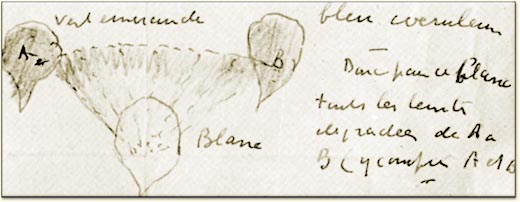 vert emeraude
A
B
Blanc
bleu ceruleum
Donc pour ce blanc
toutes les teintes
degradées de A a
B (y compris A et B